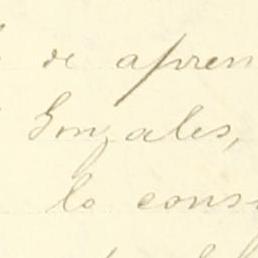 de apren
Gonzales,
lo cons